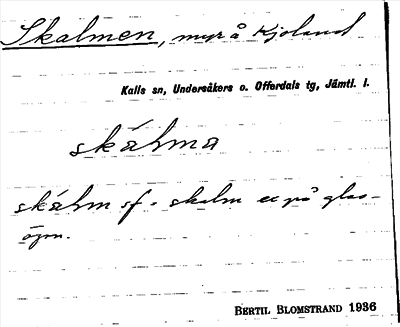 Skalmen, myr å Kjoland
Kalls sn, Undersåkers o. Offerdals tg, Jämtl. l.
skáhma
skáhm sf. skalm ex på glas-
ögon.
BERTIL BLOMSTRAND 1936